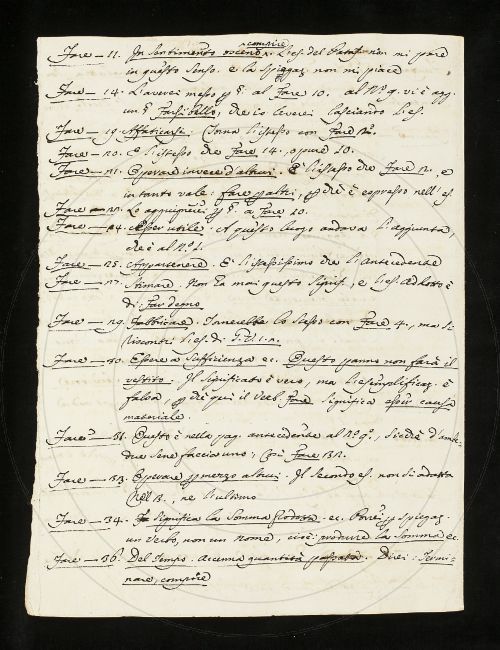 Fare — 11. In sentimento osceno. L'es. del non mi pare
compire
in questo senso. e la spiegaz. non mi piace
Fare — 14. L'averei messo al Fare 10. al N.° 9. vi è
un § Farsi bello, che io leverei lasciando l'es.
Fare — 19. Affaticarsi. Torna l'istesso con Fare
Fare — 20. È l'istesso che Fare 14. o pure 10.
Fare — 21. Operare invece d'altrui. È l'istesso che Fare 12. e
intanto vale: fare p altri, è espresso nell'es.
Fare — Lo aggiugnerei p § a Fare 20.
Fare — 24. Esser utile. A questo luogo andava l'aggiunta,
che è al N.° 1.
Fare — 25. Appartenere. È l'istessissimo che l'antecedente
Fare — 27. Stimare. Non ha mai questo signif. e l'es. addotto è
di: Far degno
Fare — 29. Fabbricare. Tornerebbe lo stesso con Fare 4. ma si
riscontri l'es. di
Fare — 30. Essere a sufficienza ec. Questo panno non farà il
vestito. Il significato è vero, ma l'esemplificaz. è
falsa, che qui il verb. Fare significa esser causa
materiale.
Fare — 31. Questo è nella pag. antecedente al N.° 9., sicchè d'am-
due sene faccia uno; così Fare 32.
Fare — 33. Operare p mezzo altrui. Il secondo es. non si adatta
ne l'ultimo
Fare — 34. significa la somma ec. Porrei p spiegaz.
un verbo, non un nome, cioè: produrre la somma ec.
Fare — 36. Del tempo. Accenna quantità passata. Direi: Termi-
nare, compire